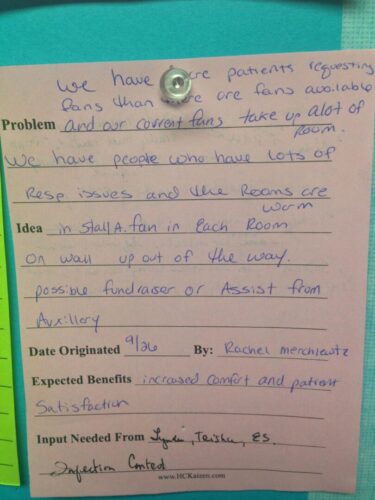 we have more patients requesting
fans than there are fans available
Problem and our current fans take up alot of
room.
we have people who have lots of
Resp. issues and the Rooms are
warm
Idea install A. fan in Each Room
on wall up out of the way.
possible fundraiser or Assist from
Auxillory
Date Originated 9/26 By: Rachel
Expected Benefits increased comfort and patient
Satisfaction
Input Needed From ES.
Infection Control
www.HCKaizen.com